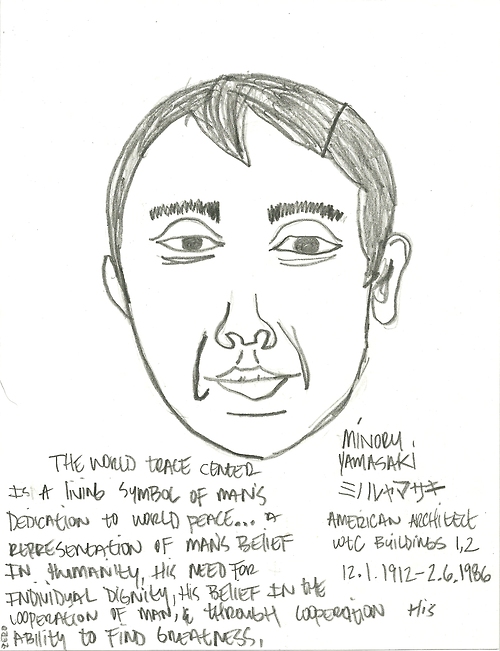 THE WORLD TRACE CENTER
IS A LIVING SYMBOL OF MAN'S
DEDICATION TO WORLD PEACE... A
REPRESENTATION OF MAN'S BELIEF
IN HUMANITY, HIS NEED FOR
INDIVIDUAL DIGNITY, HIS BELIEF IN THE
COOPERATION OF MAN, & THROUGH COOPERATION HIS
ABILITY TO FIND GREATNESS.
MINORU
YAMASAKI
ミノルヤマサキ
AMERICAN ARCHITECT
WTC BUILDINGS 1,2
12.1.1912-2.6.1986